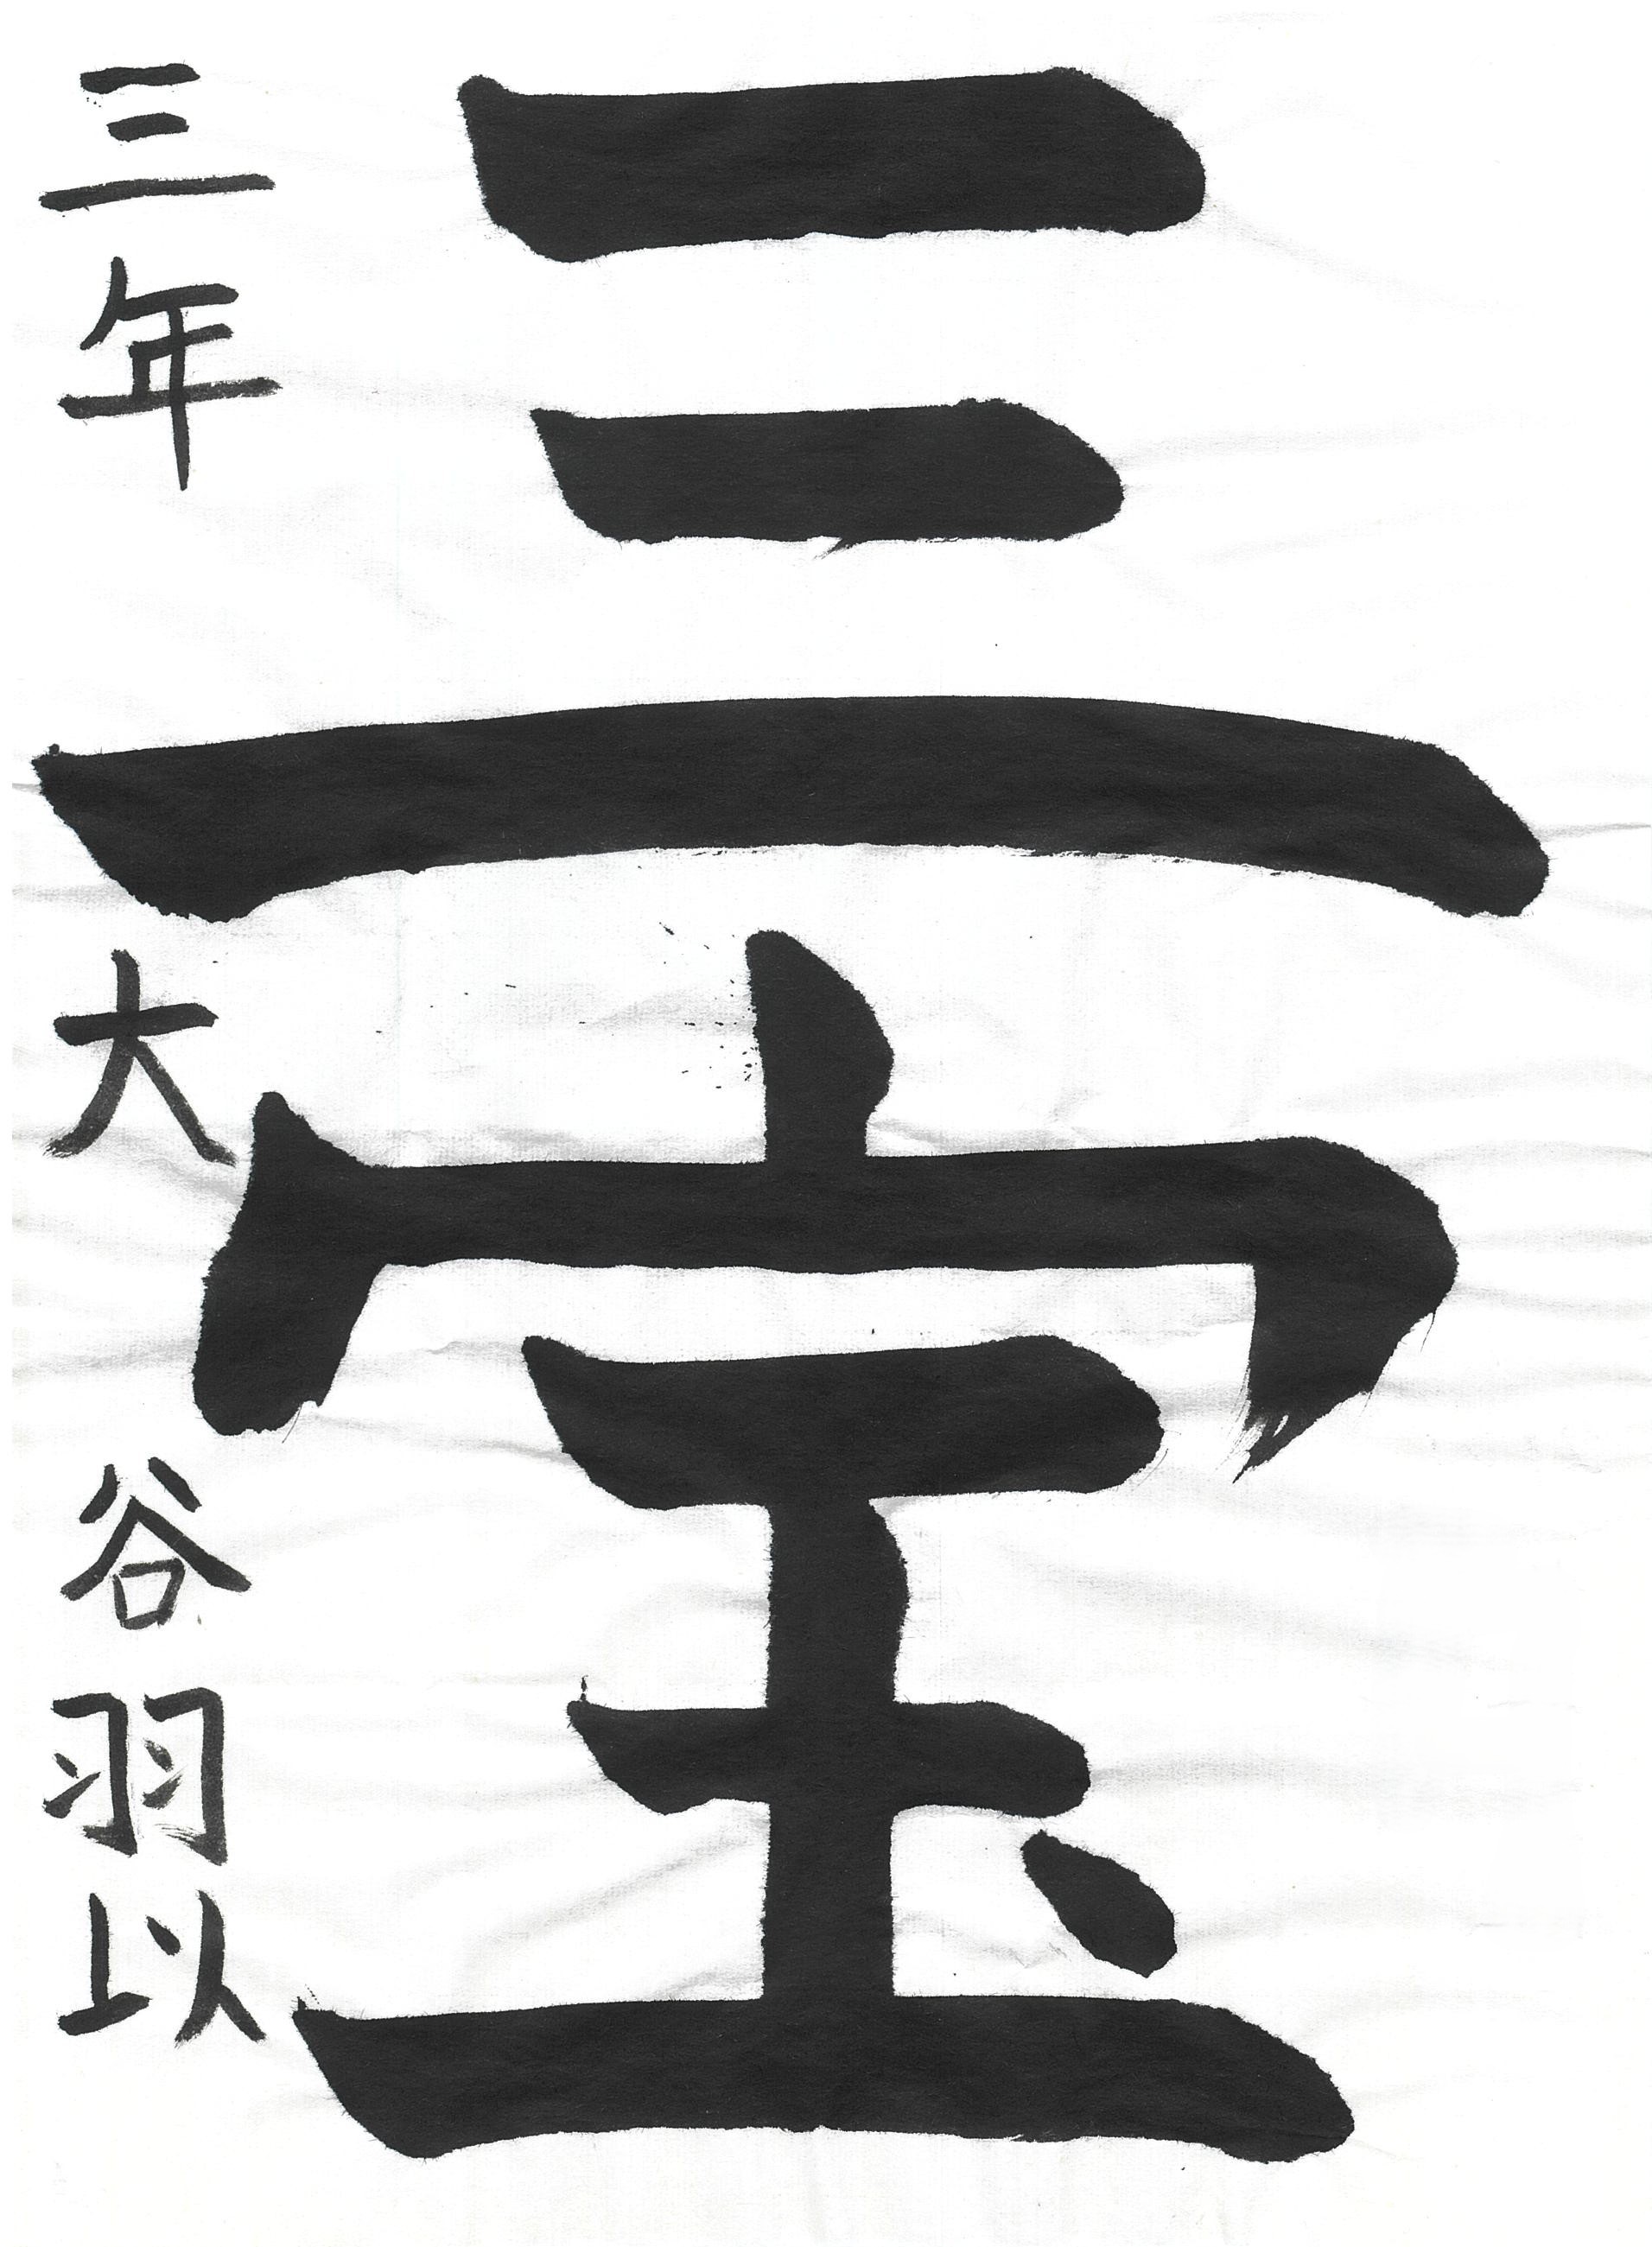 三宝
三年 大谷羽以